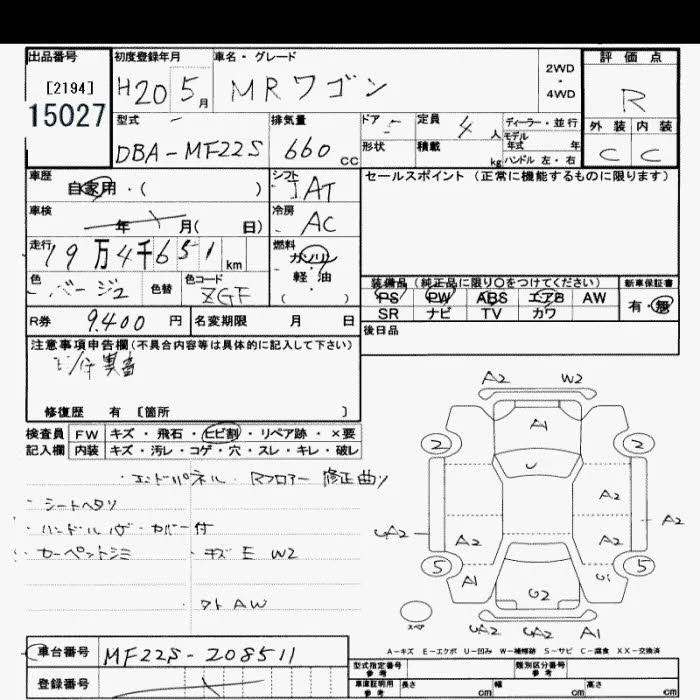 出品番号 初度登録年月 車名・グレード 評価点
[2194] H20 5月 MRワゴン 2WD・4WD R
15027
型式 排気量 ドア 5 定員 4人 ディーラー・並行 外装 内装
DBA-MF22S 660 CC 形状 積載 kg モデル年式 年 ハンドル 左・右 C C
車歴 自家用・( ) シフト AT セールスポイント(正常に機能するものに限ります)
車検 年 月( 日) 冷房 AC
走行 19万4千651 km 燃料 ガソリン
軽・油
( ・ )
色 ベージュ 色替 色コード ZGF
装備品(純正品に限り○をつけてください) 新車保証書
PS PW ABS エアB AW 有・無
SR ナビ TV カワ
R券 9,400 円 名変期限 月 日 後日品
注意事項申告欄(不具合内容等は具体的に記入して下さい)
修復歴 有 [箇所 ]
検査員 FW キズ・飛石・ヒビ割・リペア跡・×要
記入欄 内装 キズ・汚レ・コゲ・穴・スレ・キレ・破レ
・エンドパネル・Rフロアー 修正曲り
・シートヘタリ
・ハンドル カバー付
・カーペットシミ ・キズ E W2
タト AW
A2 W2
A1
2 2
U
A2
UA2 A2
A2 A2
5 5
A1 U1
U2
スペア
UA2 UA2 A1
A-キズ E-エクボ U-凹み W-補修跡 S-サビ C-腐食 XX-交換済
車台番号 MF22S-208511
登録番号
型式指定番号 参考 類別区分番号 参考
車庫証明用 参考 長さ cm 幅 cm 高さ cm